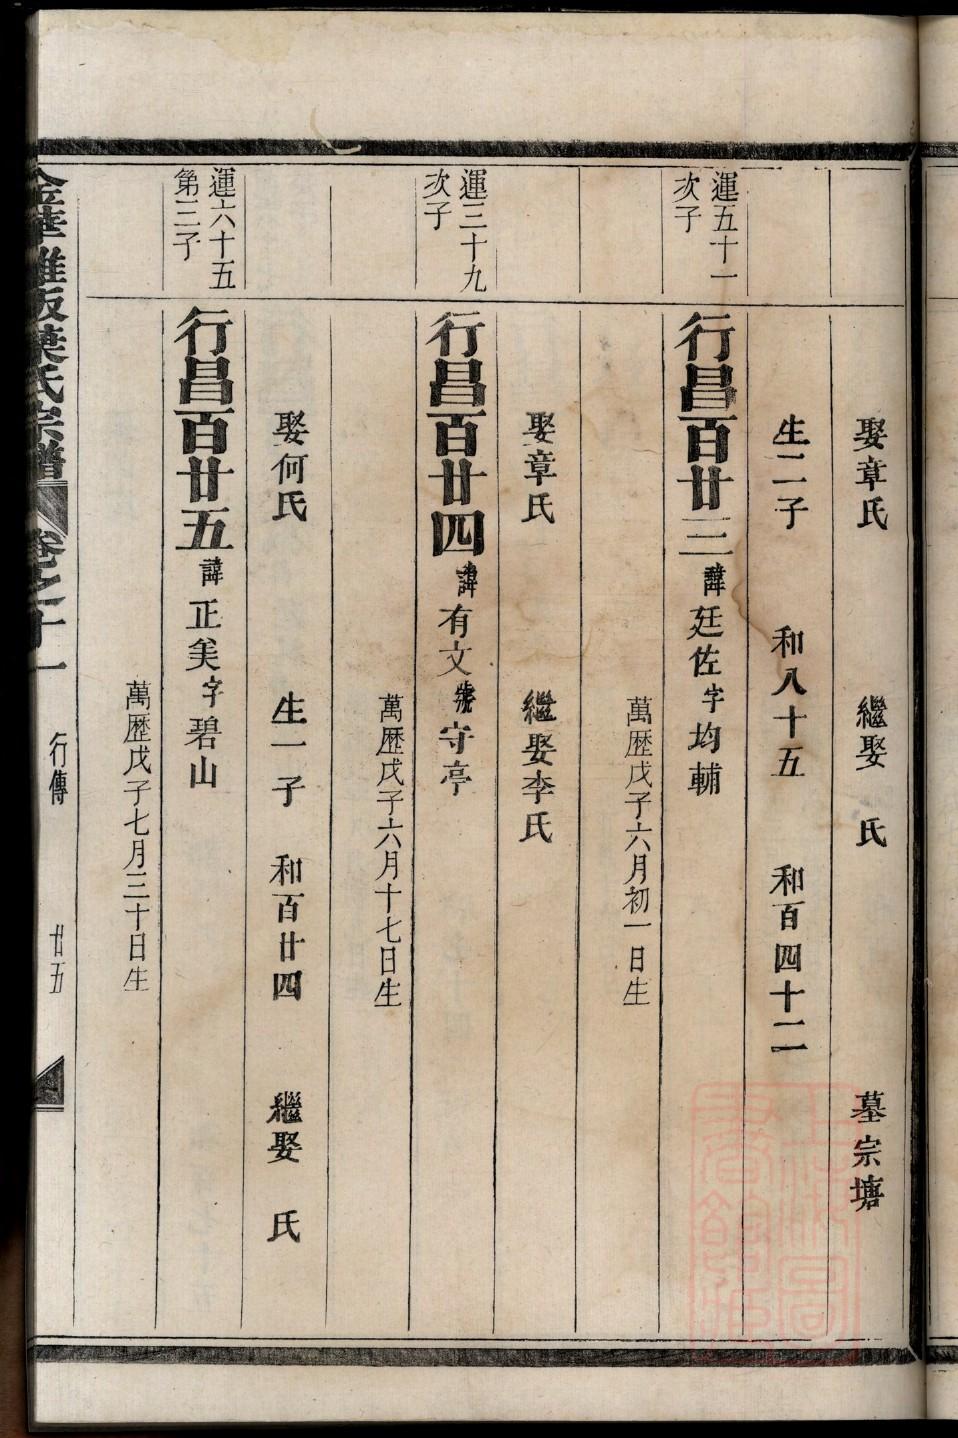 娶章氏　繼娶　氏　墓宗塘
生二子　和八十五　和百四十二
運五十一
次子
行昌百廿三諱廷佐字均輔
萬歷戊子六月初一日生
娶章氏　繼娶李氏
運三十九
次子
行昌百廿四諱有文號守亭
萬歷戊子六月十七日生
娶何氏　生一子　和百廿四　繼娶　氏
運六十五
第三子
行昌百廿五諱正美字碧山
萬歷戊子七月三十日生
金華雅畈葉氏宗譜　卷之十一　行傳　廿五